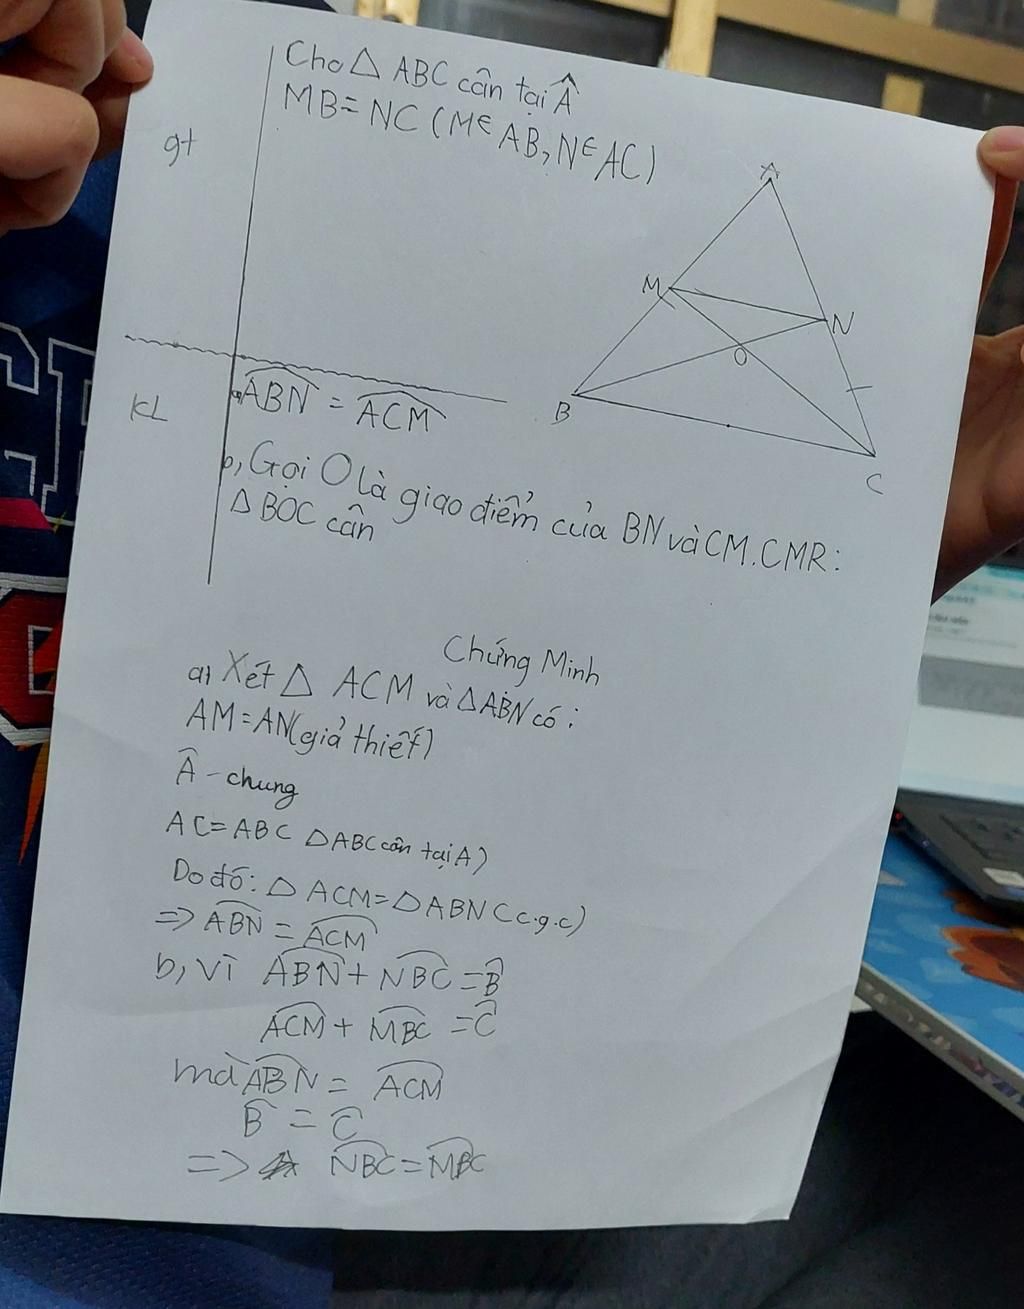 Cho △ ABC cân tại Â
MB = NC (M∈ AB, N∈ AC)
gt
A
M
N
O
B
C
KL
a, ABN = ACM
b, Gọi O là giao điểm của BN và CM. CMR:
△ BOC cân
Chứng Minh
a) Xét △ ACM và △ABN có:
AM = AN (giả thiết)
Â - chung
AC = ABC △ABC cân tại A)
Do đó: △ ACM = △ABN (c.g.c)
=> ABN = ACM
b, Vì ABN + NBC = B
ACM + MBC = C
mà ABN = ACM
B = C
=> NBC = MBC